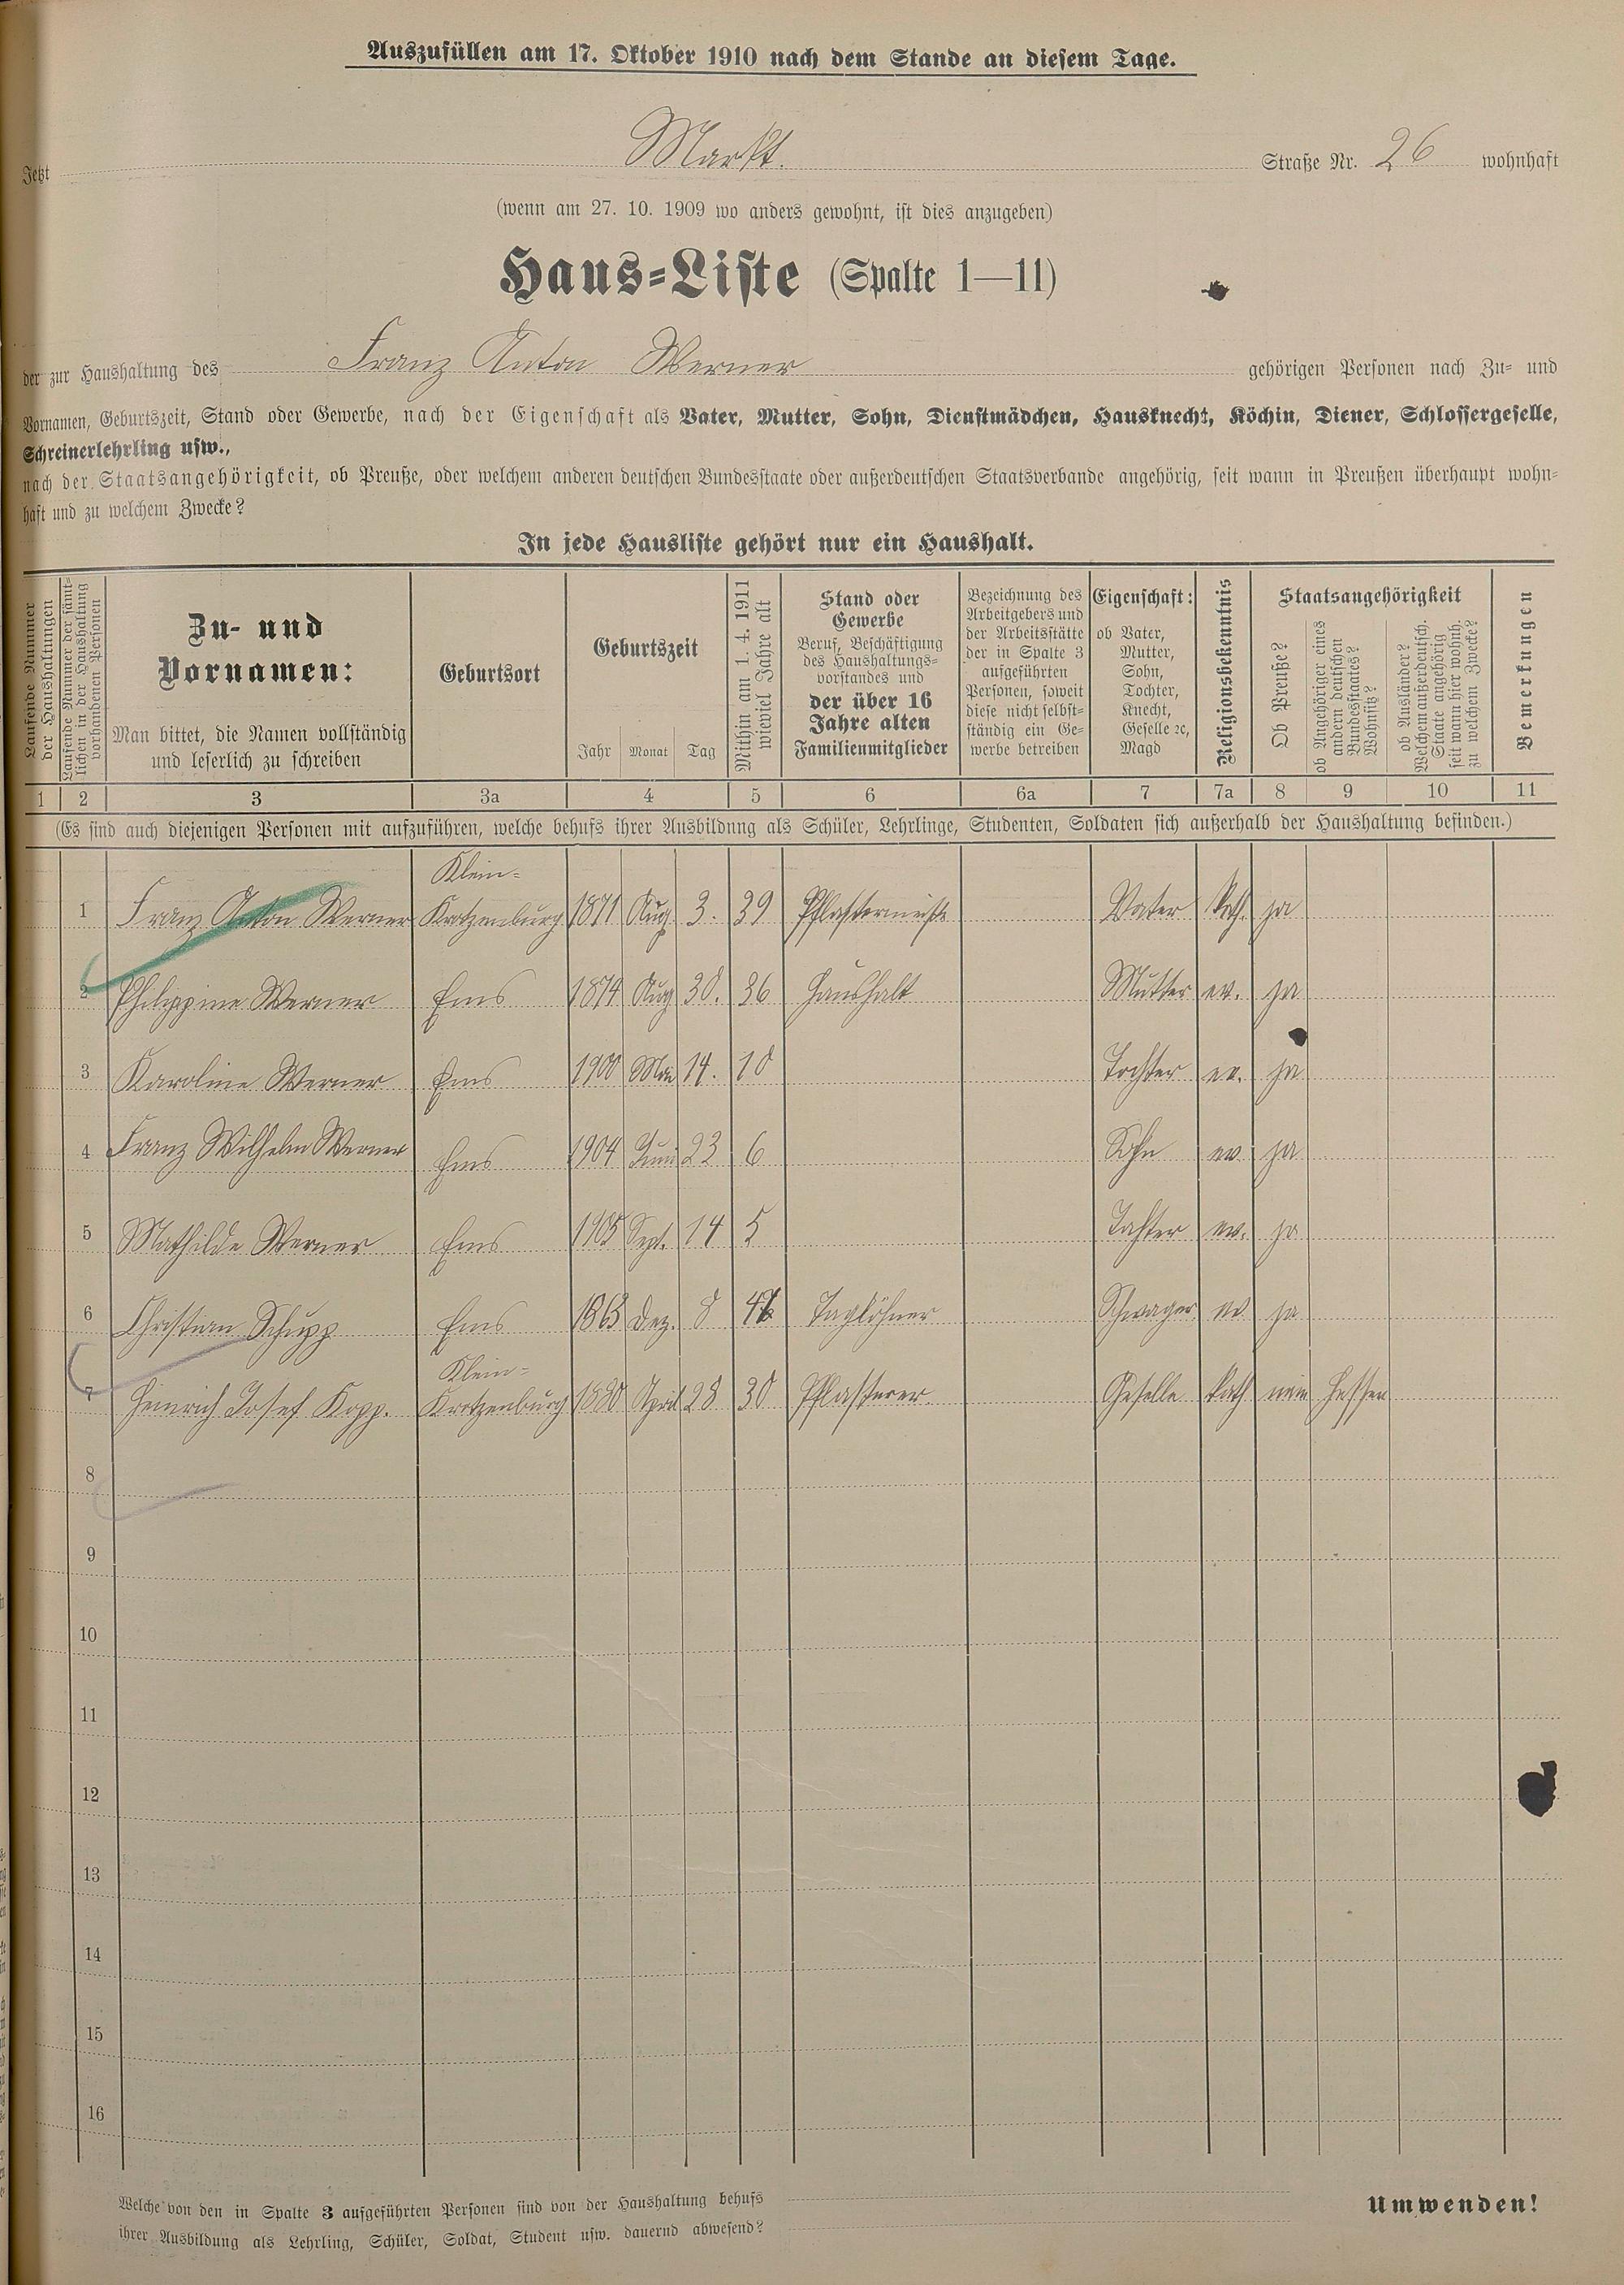 Auszufüllen am 17. Oktober 1910 nach dem Stande an diesem Tage.
Jetzt Markt. Straße Nr. 26 wohnhaft
(wenn am 27. 10. 1909 wo anders gewohnt, ist dies anzugeben)
Haus=Liste (Spalte 1—11)
der zur Haushaltung des Franz Anton Werner gehörigen Personen nach Zu= und
Vornamen, Geburtszeit, Stand oder Gewerbe, nach der Eigenschaft als Vater, Mutter, Sohn, Dienstmädchen, Hausknecht, Köchin, Diener, Schlossergeselle,
Schreinerlehrling usw.,
nach der Staatsangehörigkeit, ob Preuße, oder welchem anderen deutschen Bundesstaate oder außerdeutschen Staatsverbande angehörig, seit wann in Preußen überhaupt wohn=
haft und zu welchem Zwecke?
In jede Hausliste gehört nur ein Haushalt.
Laufende Nummer
der Haushaltungen
Laufende Nummer der sämt=
lichen in der Haushaltung
vorhandenen Personen
Zu- und
Vornamen:
Man bittet, die Namen vollständig
und leserlich zu schreiben
Geburtsort
Geburtszeit
Jahr Monat Tag
Mithin am 1. 4. 1911
wieviel Jahre alt
Stand oder
Gewerbe
Beruf, Beschäftigung
des Haushaltungs=
vorstandes und
der über 16
Jahre alten
Familienmitglieder
Bezeichnung des
Arbeitgebers und
der Arbeitsstätte
der in Spalte 3
aufgeführten
Personen, soweit
diese nicht selbst=
ständig ein Ge=
werbe betreiben
Eigenschaft:
ob Vater,
Mutter,
Sohn,
Tochter,
Knecht,
Geselle ꝛc,
Magd
Religionsbekenntnis
Staatsangehörigkeit
Ob Preuße?
ob Angehöriger eines
andern deutschen
Bundesstaates?
Wohnsitz?
ob Ausländer?
Welchem außerdeutsch.
Staate angehörig
seit wann hier wohnh.
zu welchem Zwecke?
Bemerkungen
1 2 3 3a 4 5 6 6a 7 7a 8 9 10 11
(Es sind auch diejenigen Personen mit aufzuführen, welche behufs ihrer Ausbildung als Schüler, Lehrlinge, Studenten, Soldaten sich außerhalb der Haushaltung befinden.)
Klein=
1 Franz Anton Werner Krotzenburg 1871 Aug. 3. 39 Pflastermeister Vater kath. ja
2 Philippine Werner Ems 1874 Aug 30. 36 Haushalt Mutter ev. ja
3 Karoline Werner Ems 1900 14. 10 Tochter ev. ja
4 Franz Wilhelm Werner Ems 1904 Juni 23 6 Sohn ev. ja
5 Mathilde Werner Ems 1905 Sept. 14 5 Tochter ev. ja
6 Christian Schupp Ems 1863 Dez. 8 Taglöhner Schwager ev. ja
Klein=
7 Heinrich Josef Kopp. Krotzenburg 1880 April 28 30 Pflasterer. Geselle kath nein Hessen
8
9
10
11
12
13
14
15
16
Welche von den in Spalte 3 aufgeführten Personen sind von der Haushaltung behufs
ihrer Ausbildung als Lehrling, Schüler, Soldat, Student usw. dauernd abwesend?
Umwenden!